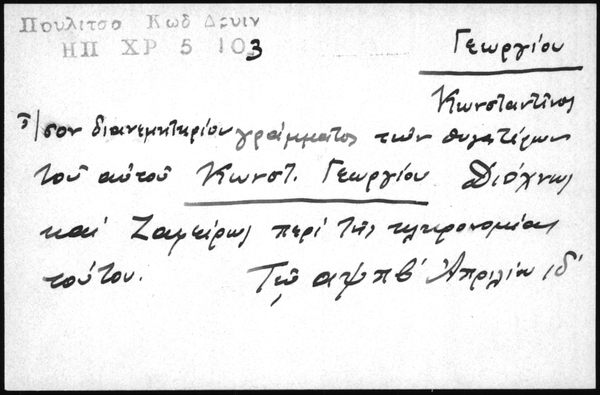 Πουλιτσα Κωδ Δρυιν
ΗΠ ΧΡ 5 103
Γεωργίου
Κωνσταντῖνος
ἴσον διανεμητηρίου γράμματος τῶν θυγατέρων
τοῦ αὐτοῦ Κωνστ. Γεωργίου Διόχνως
καί Ζαφείρως περί τῆς κληρονομίας
τούτου. Τῷ αψπβ' Ἀπριλίῳ ιδ'